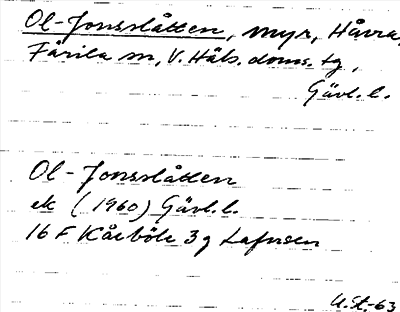 Ol-Jonsslåtten, myr, Håvra,
Färila sn, V. Häls. doms. tg,
Gävl. l.
Ol-Jonsslåtten
ek (1960) Gävl. l.
16 F Kårböle 3 g
U.St.-63